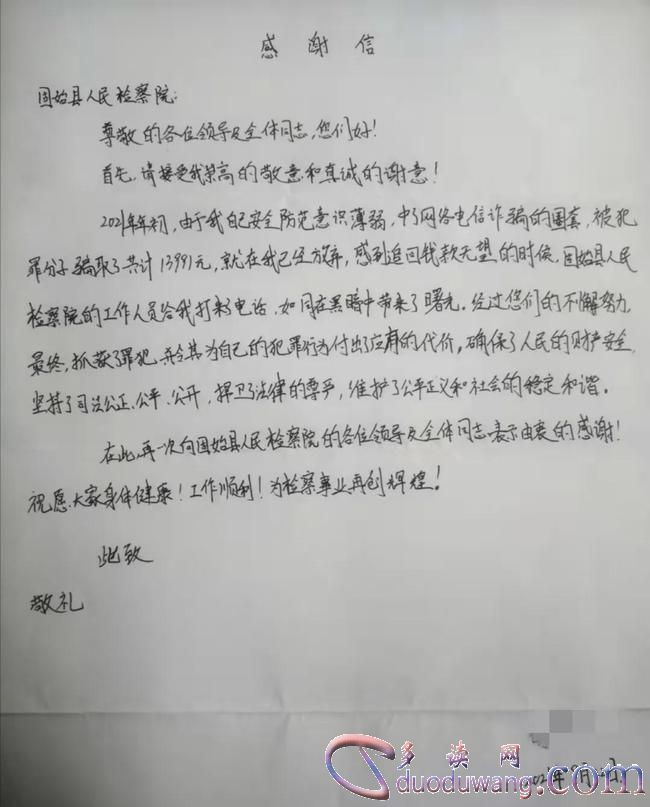 感谢信
固始县人民检察院:
尊敬的各位领导及全体同志,您们好!
首先,请接受我崇高的敬意和真诚的谢意!
2021年年初,由于我自己安全防范意识薄弱,中了网络电信诈骗的圈套,被犯
罪分子骗取了共计13991元,就在我已经放弃,感到追回钱款无望的时候,固始县人民
检察院的工作人员给我打来了电话,如同在黑暗中带来了曙光。经过您们的不懈努力,
最终,抓获了罪犯,并令其为自己的犯罪行为付出了应有的代价,确保了人民的财产安全,
坚持了司法公正、公平、公开,捍卫了法律的尊严,维护了公平正义和社会的稳定和谐。
在此,再一次向固始县人民检察院的各位领导及全体同志,表示由衷的感谢!
祝愿大家身体健康!工作顺利!为检察事业再创辉煌!
此致
敬礼
多读网
duoduwang.com
2021年9月 日